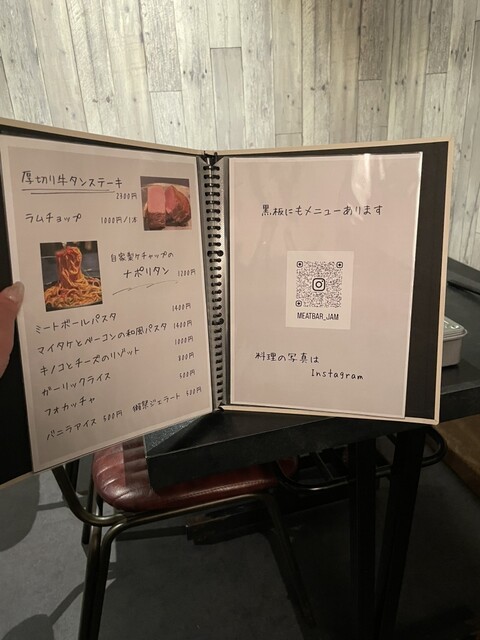 厚切り牛タンステーキ
2300円
ラムチョップ 1000円/1本
自家製ケチャップの
ナポリタン 1200円
ミートボールパスタ 1400円
マイタケとベーコンの和風パスタ 1400円
キノコとチーズのリゾット 1000円
ガーリックライス 800円
フォカッチャ 400円
バニラアイス 400円 ジェラート 400円
黒板にもメニューあります
MEATBAR_JAM
料理の写真は
Instagram